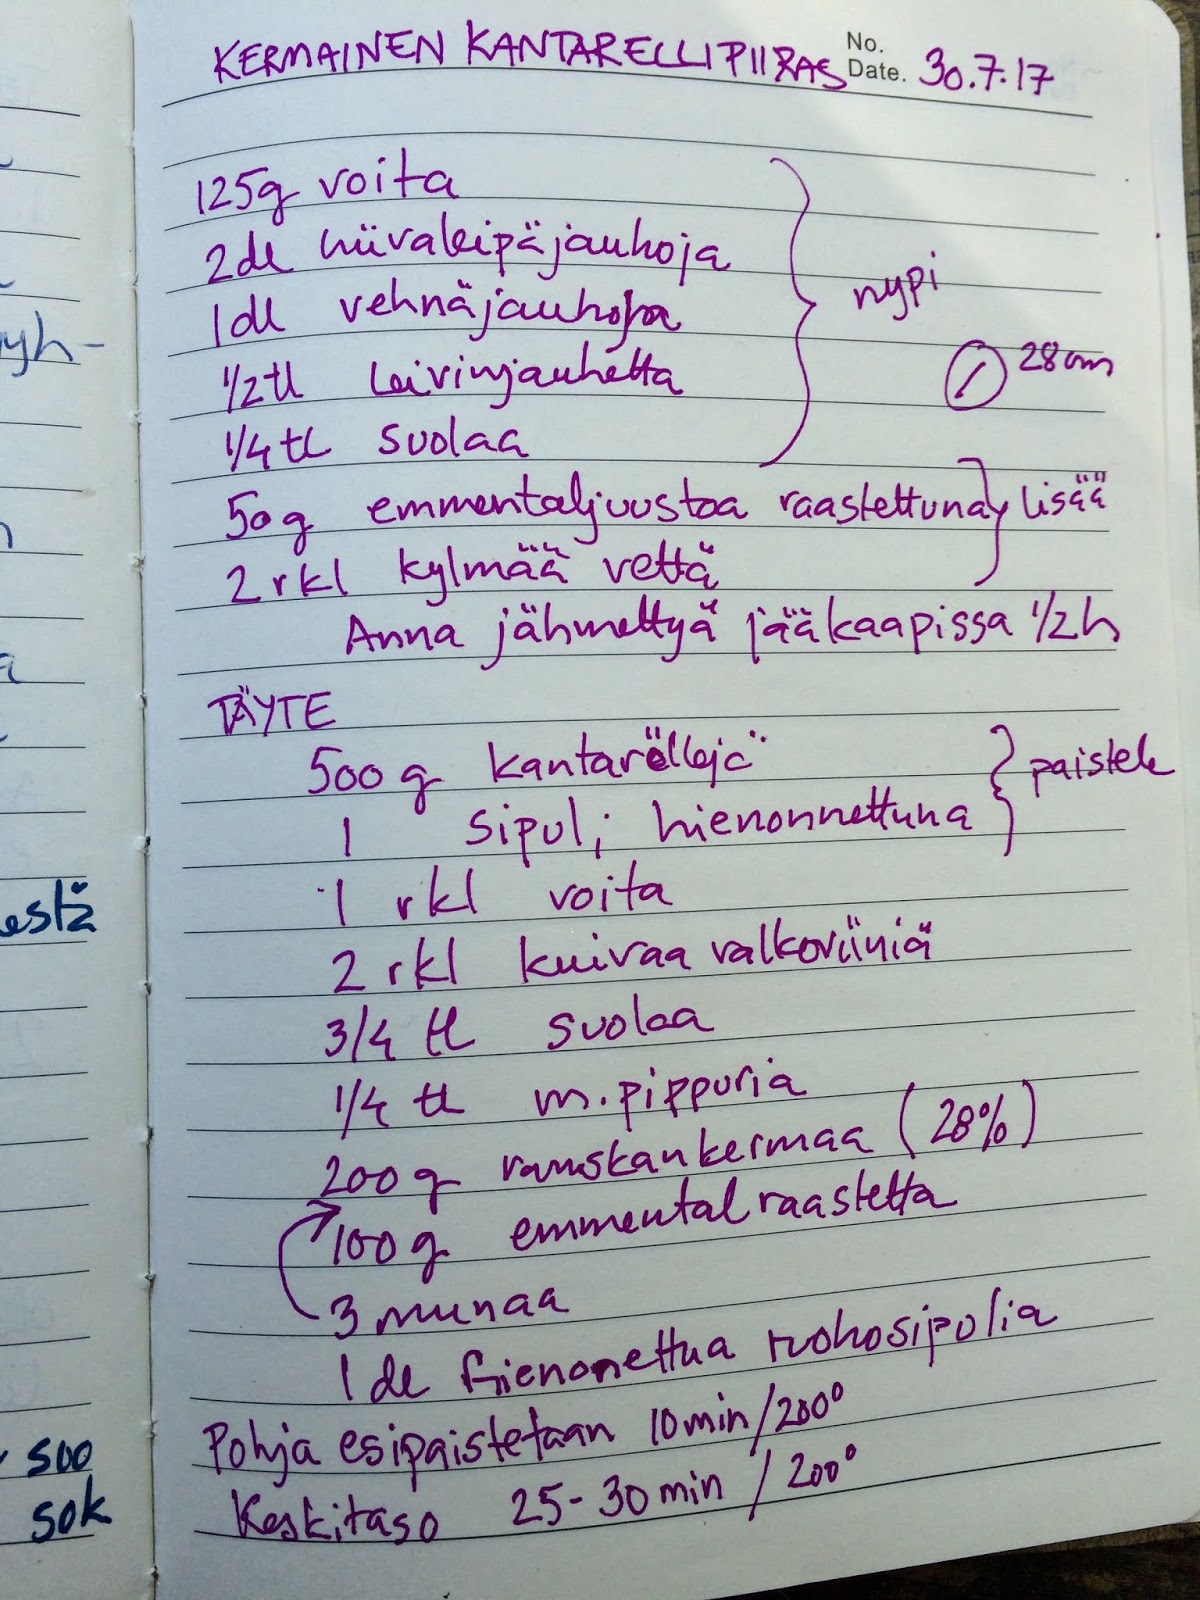 KERMAINEN KANTARELLIPIIRAS No. Date. 30.7.17
125g voita
2dl hiivaleipäjauhoja
1dl vehnäjauhoja
nypi
1/2 tl leivinjauhetta
28cm
1/4 tl suolaa
50g emmentaljuustoa raastettuna lisää
2 rkl kylmää vettä
Anna jähmettyä jääkaapissa 1/2h
TÄYTE
500g kantarelleja
paistele
1 sipuli hienonnettuna
1 rkl voita
2 rkl kuivaa valkoviiniä
3/4 tl suolaa
1/4 tl m.pippuria
200g ranskankermaa (28%)
100g emmentalraastetta
3 munaa
1 dl hienonettua ruohosipolia
Pohja esipaistetaan 10min/200°
Keskitaso 25-30min/200°
yh-
estä
soo
sok